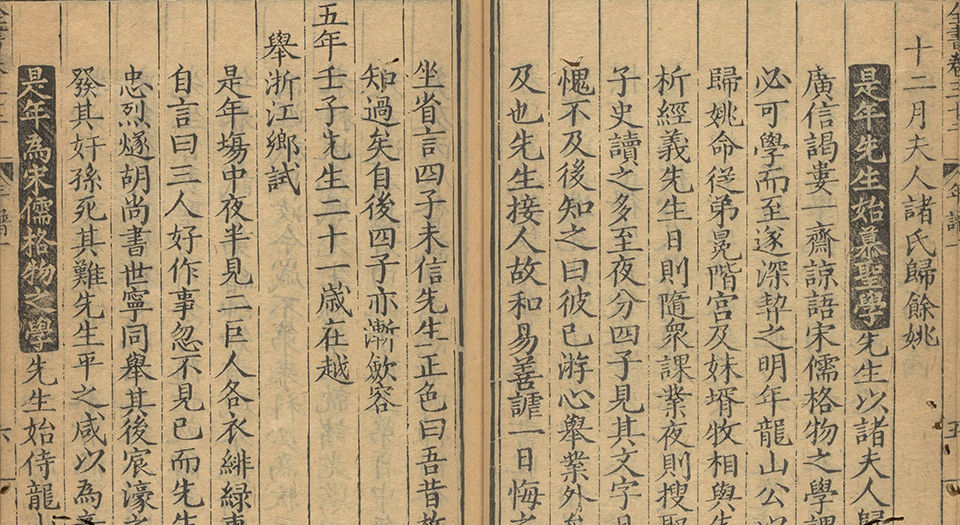 十二月夫人諸氏歸餘姚
是年先生始慕聖學先生以諸夫人歸
廣信謁婁一齋諒語宋儒格物之學
必可學而至遂深契之明年龍山公
歸姚命從弟冕階宮及妹壻牧相與
析經義先生日則隨眾課業夜則搜
子史讀之多至夜分四子見其文字日
愧不及後知之曰彼已游心舉業外
及也先生接人故和易善謔一日悔之
坐省言四子未信先生正色曰吾昔
知過矣自後四子亦漸歛容
五年壬子先生二十一歲在越
舉浙江鄉試
是年塲中夜半見二巨人各衣緋綠
自言曰三人好作事忽不見已而先生
忠烈燧胡尚書世寧同舉其後宸濠之
發其奸孫死其難先生平之咸以為
是年為宋儒格物之學先生始侍龍